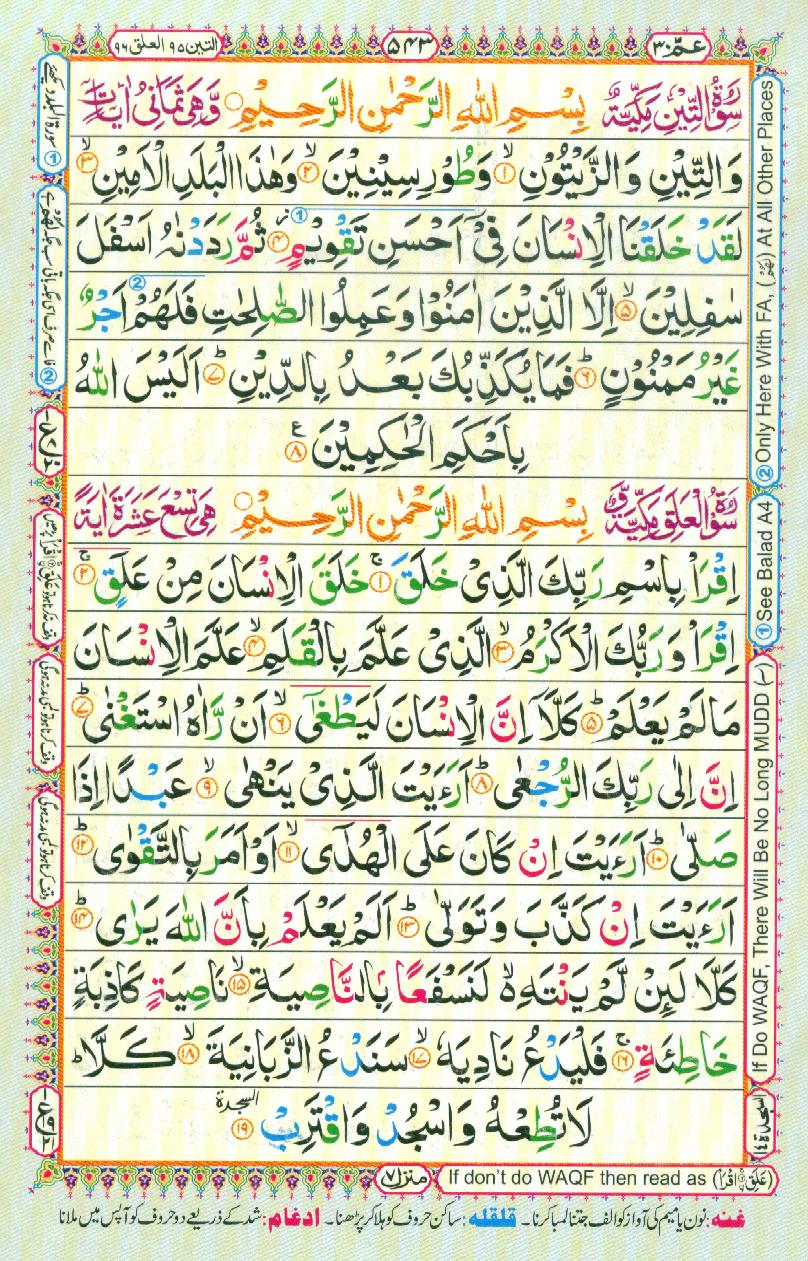 عمّ ٣٠
٥٤٣
التين ٩٥ العلق ٩٦
سُوْرَةُ التِّيْنِ مَكِّيَّةٌ بِسْمِ اللهِ الرَّحْمٰنِ الرَّحِيْمِ وَّهِىَ ثَمَانِىْ اٰيَاتٍ
وَالتِّيْنِ وَالزَّيْتُوْنِ ۙ﴿١﴾ وَطُوْرِ سِيْنِيْنَ ۙ﴿٢﴾ وَهٰذَا الْبَلَدِ الْاَمِيْنِ ۙ﴿٣﴾
لَقَدْ خَلَقْنَا الْاِنْسَانَ فِىْۤ اَحْسَنِ تَقْوِيْمٍ ۫﴿٤﴾ ثُمَّ رَدَدْنٰهُ اَسْفَلَ
سٰفِلِيْنَ ۙ﴿٥﴾ اِلَّا الَّذِيْنَ اٰمَنُوْا وَعَمِلُوا الصّٰلِحٰتِ فَلَهُمْ اَجْرٌ
غَيْرُ مَمْنُوْنٍ ؕ﴿٦﴾ فَمَا يُكَذِّبُكَ بَعْدُ بِالدِّيْنِ ؕ﴿٧﴾ اَلَيْسَ اللهُ
بِاَحْكَمِ الْحٰكِمِيْنَ ع﴿٨﴾
سُوْرَةُ الْعَلَقِ مَكِّيَّةٌ وَّ بِسْمِ اللهِ الرَّحْمٰنِ الرَّحِيْمِ هِىَ تِسْعَ عَشَرَةَ اٰيَةً
اِقْرَاْ بِاسْمِ رَبِّكَ الَّذِىْ خَلَقَ ۚ﴿١﴾ خَلَقَ الْاِنْسَانَ مِنْ عَلَقٍ ۚ﴿٢﴾
اِقْرَاْ وَرَبُّكَ الْاَكْرَمُ ۙ﴿٣﴾ الَّذِىْ عَلَّمَ بِالْقَلَمِ ۙ﴿٤﴾ عَلَّمَ الْاِنْسَانَ
مَا لَمْ يَعْلَمْ ؕ﴿٥﴾ كَلَّاۤ اِنَّ الْاِنْسَانَ لَيَطْغٰۤى ۙ﴿٦﴾ اَنْ رَّاٰهُ اسْتَغْنٰى ؕ﴿٧﴾
اِنَّ اِلٰى رَبِّكَ الرُّجْعٰى ؕ﴿٨﴾ اَرَءَيْتَ الَّذِىْ يَنْهٰى ۙ﴿٩﴾ عَبْدًا اِذَا
صَلّٰى ؕ﴿١٠﴾ اَرَءَيْتَ اِنْ كَانَ عَلَى الْهُدٰٓى ۙ﴿١١﴾ اَوْ اَمَرَ بِالتَّقْوٰى ؕ﴿١٢﴾
اَرَءَيْتَ اِنْ كَذَّبَ وَتَوَلّٰى ؕ﴿١٣﴾ اَلَمْ يَعْلَمْ بِاَنَّ اللهَ يَرٰى ؕ﴿١٤﴾
كَلَّا لَئِنْ لَّمْ يَنْتَهِ ۙ۬ لَنَسْفَعًا بِالنَّاصِيَةِ ۙ﴿١٥﴾ نَاصِيَةٍ كَاذِبَةٍ
خَاطِئَةٍ ۚ﴿١٦﴾ فَلْيَدْعُ نَادِيَهٗ ۙ﴿١٧﴾ سَنَدْعُ الزَّبَانِيَةَ ۙ﴿١٨﴾ كَلَّا ؕ
لَا تُطِعْهُ وَاسْجُدْ وَاقْتَرِبْ السجدة ﴿١٩﴾
② Only Here With FA, (لَهُمْ) At All Other Places
① See Balad A4
If Do WAQF, There Will Be No Long MUDD (ٓ)
السجدة ١٤
① سورۃ البلد دیکھئے
If don't do WAQF then read as (عَلَقِ ۨ اقْرَاْ)
منزل ٧
غنہ: نون یا میم کی آواز کو الف جتنا لمبا کرنا۔ قلقلہ: ساکن حروف کو ہلا کر پڑھنا۔ ادغام: شد کے ذریعے دو حروف کو آپس میں ملانا